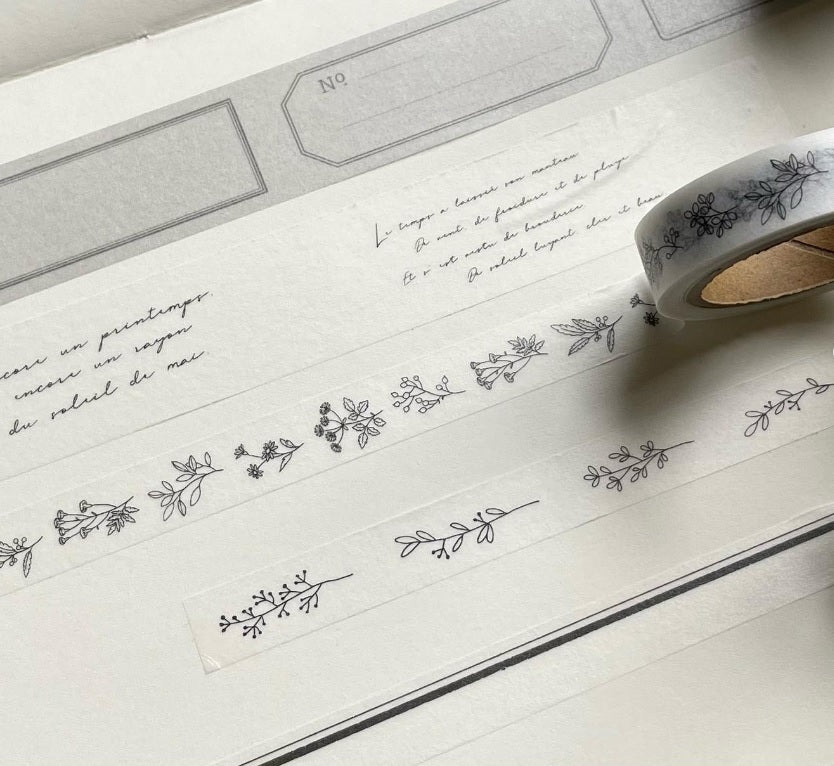 Nº
Le temps a laissié son manteau
De vent, de froidure et de pluye
Et s'est vestu de brouderie
De soleil luyant cler et beau
encore un printemps,
encore un rayon
du soleil de mai.